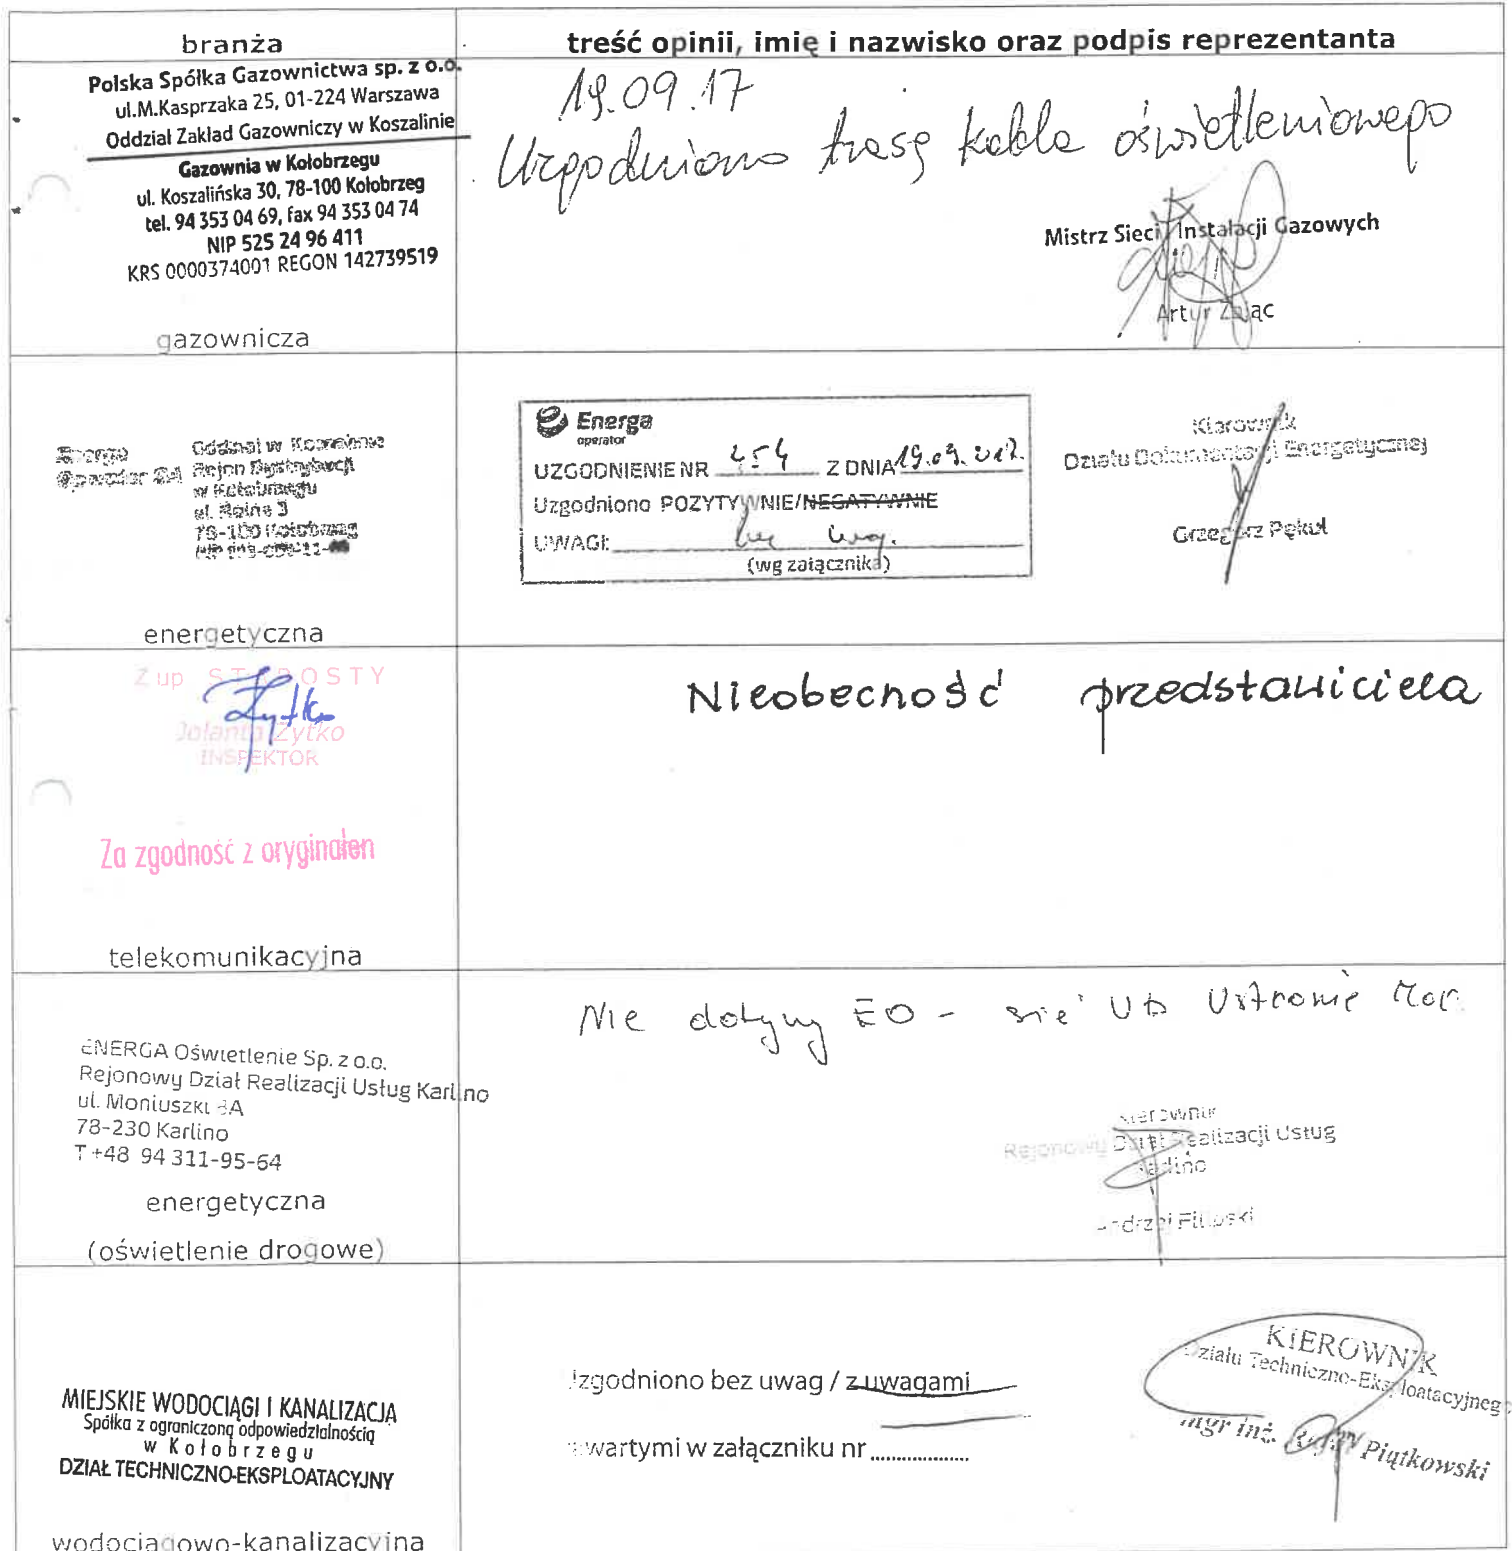 branża
treść opinii, imię i nazwisko oraz podpis reprezentanta
Polska Spółka Gazownictwa sp. z o.o.
ul.M.Kasprzaka 25, 01-224 Warszawa
Oddział Zakład Gazowniczy w Koszalinie
Gazownia w Kołobrzegu
ul. Koszalińska 30, 78-100 Kołobrzeg
tel. 94 353 04 69, fax 94 353 04 74
NIP 525 24 96 411
KRS 0000374001 REGON 142739519
gazownicza
19.09.17
Uzgodniono trasę kabla oświetleniowego
Mistrz Sieci i Instalacji Gazowych
Artur Zając
Energa Oddział w Koszalinie
Operator SA Rejon Dystrybucji
w Kołobrzegu
ul. Rolna 3
78-100 Kołobrzeg
energetyczna
Energa
operator
UZGODNIENIE NR 454 Z DNIA 19.09.2017.
Uzgodniono POZYTYWNIE/NEGATYWNIE
UWAGI: bez uwag.
(wg załącznika)
Kierownik
Działu Dokumentacji Energetycznej
Grzegorz Pękul
Z up STAROSTY
Jolanta Żytko
INSPEKTOR
Za zgodność z oryginałem
telekomunikacyjna
Nieobecność przedstawiciela
ENERGA Oświetlenie Sp. z o.o.
Rejonowy Dział Realizacji Usług Karlino
ul. Moniuszki
78-230 Karlino
T +48 94 311-95-64
energetyczna
(oświetlenie drogowe)
Nie dotyczy EO - sieć Ustronie Mor.
Kierownik
Rejonowy Dział Realizacji Usług
Karlino
Andrzej
MIEJSKIE WODOCIĄGI I KANALIZACJA
Spółka z ograniczoną odpowiedzialnością
w Kołobrzegu
DZIAŁ TECHNICZNO-EKSPLOATACYJNY
wodociągowo-kanalizacyjna
Uzgodniono bez uwag / z uwagami
zawartymi w załączniku nr ..................
KIEROWNIK
Działu Techniczno-Eksploatacyjnego
mgr inż. Piątkowski